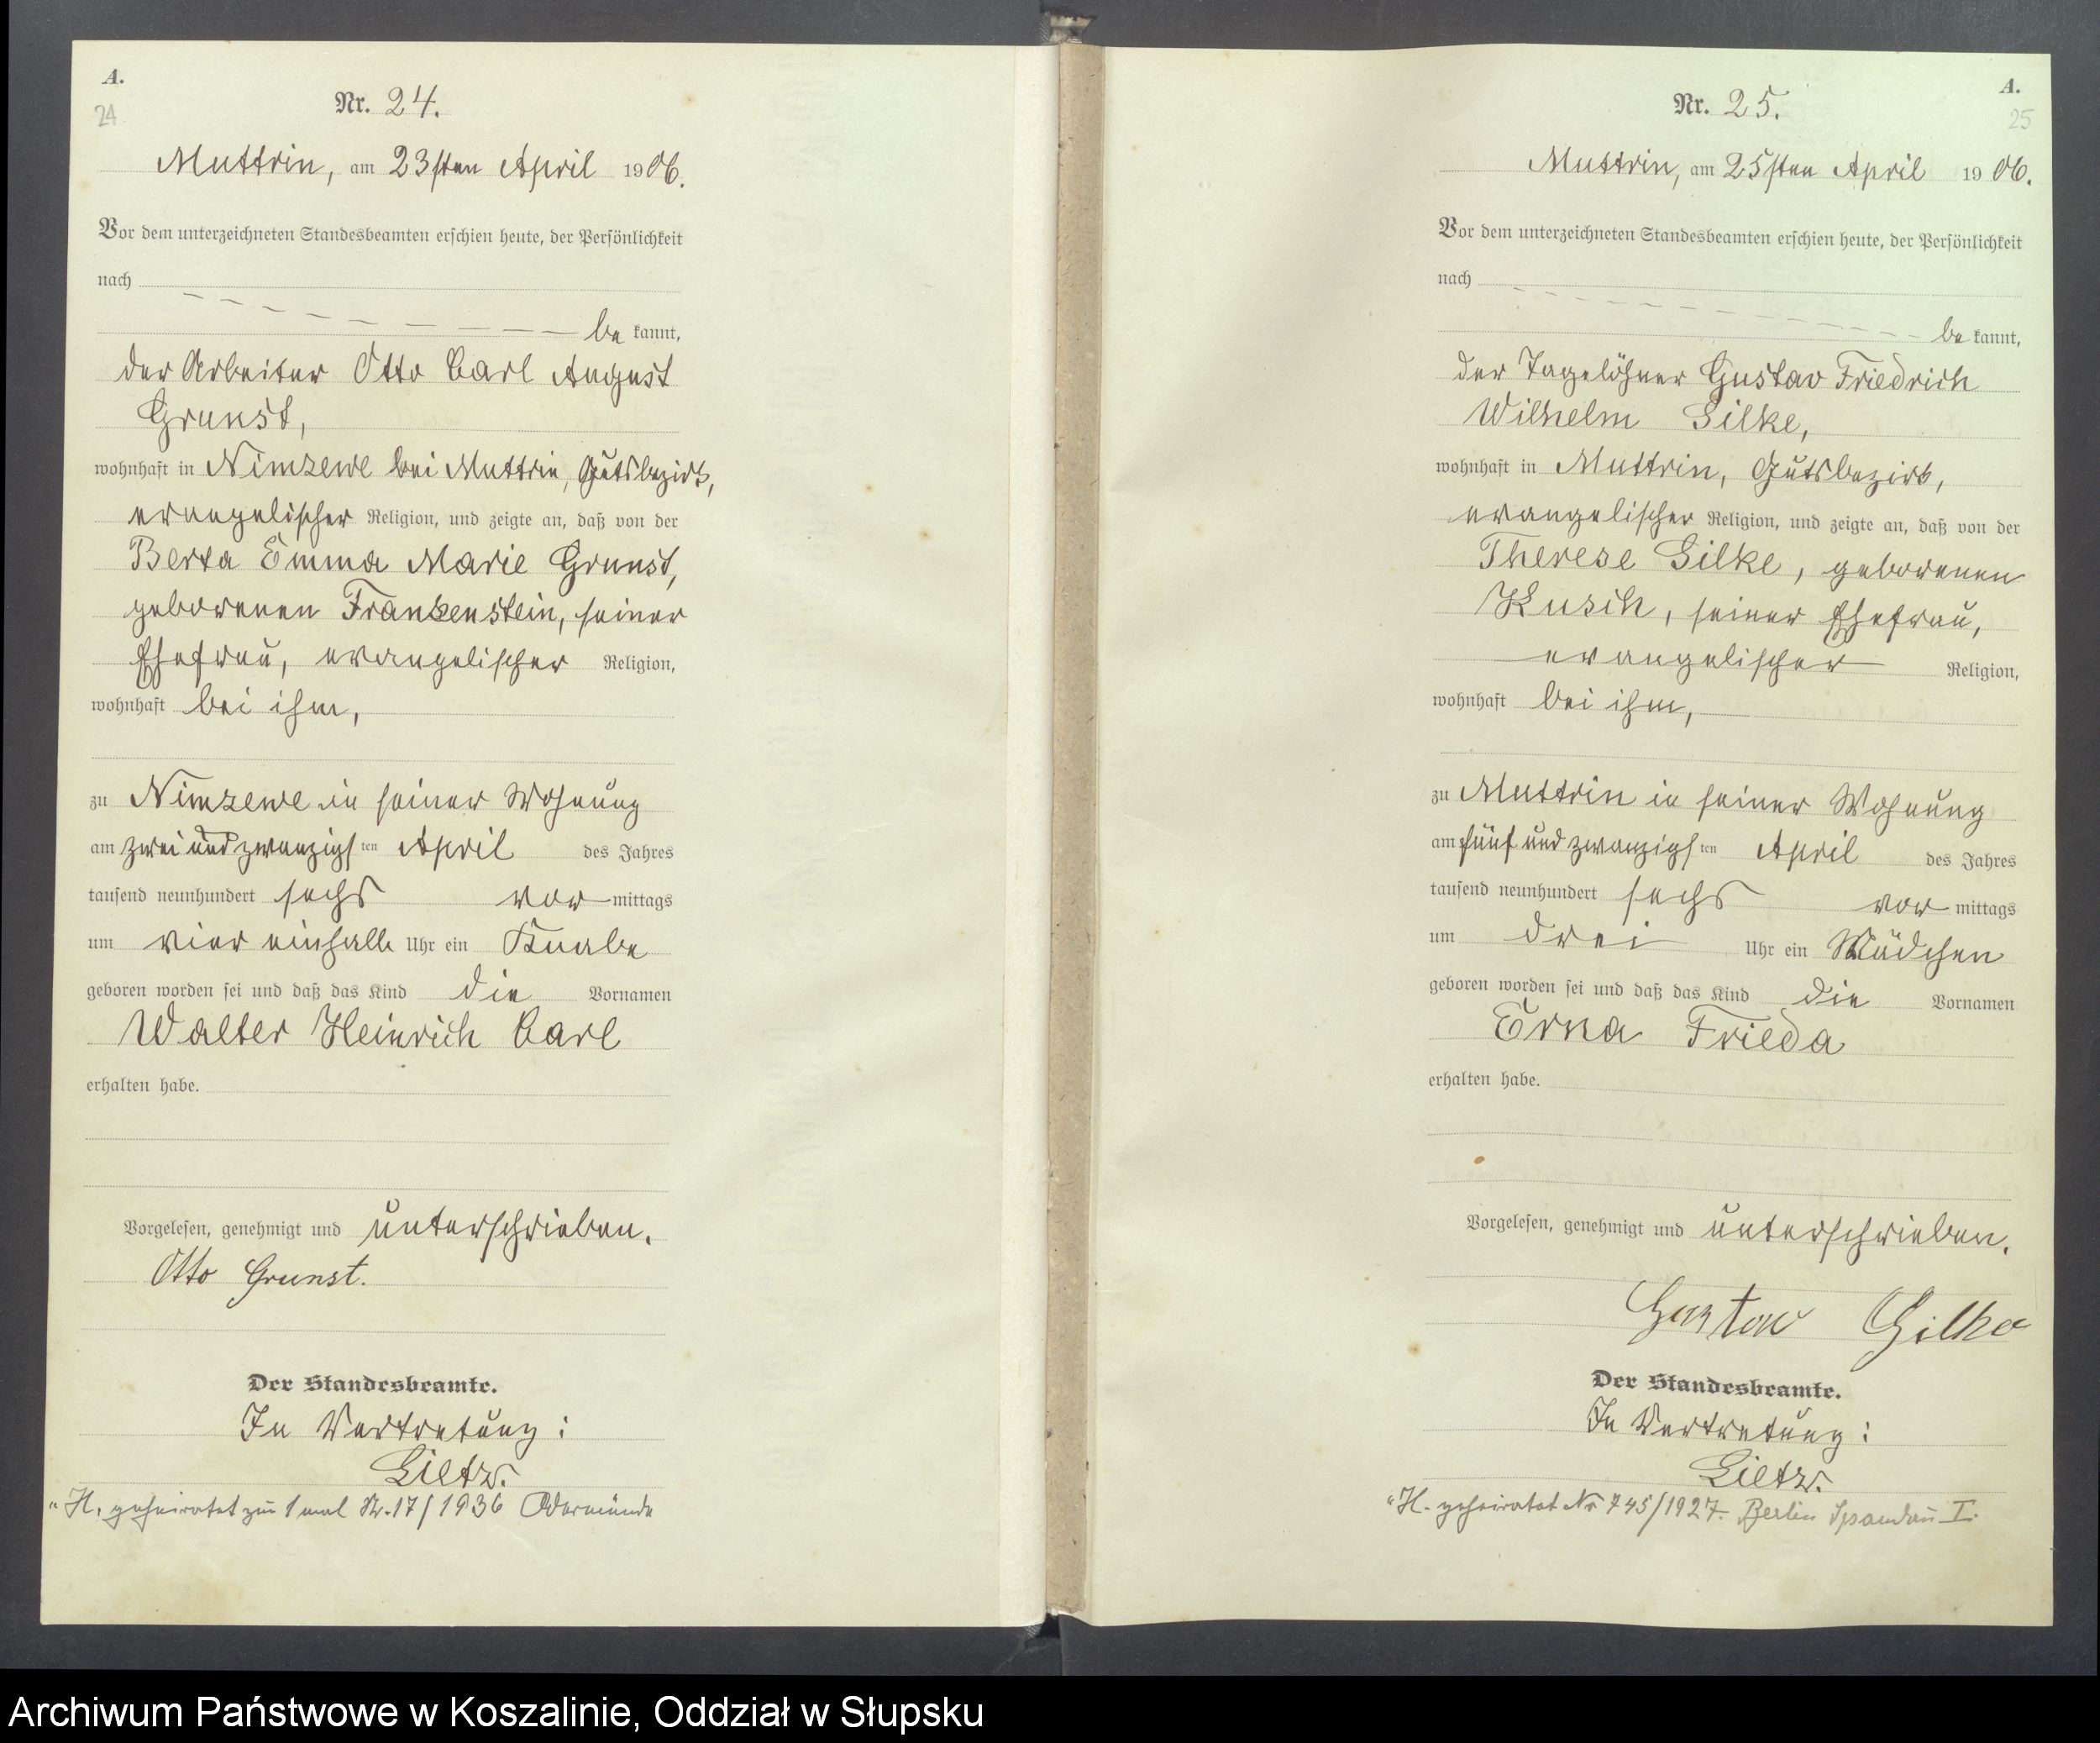 A.
24
Nr. 24.
Muttrin, am 23sten April 1906.
Vor dem unterzeichneten Standesbeamten erschien heute, der Persönlichkeit
nach
be kannt,
der Arbeiter Otto Carl August
Grunst,
wohnhaft in Nimzewe bei Muttrin, Gutsbezirk,
evangelischer Religion, und zeigte an, daß von der
Berta Emma Marie Grunst,
geborenen Frankenstein, seiner
Ehefrau, evangelischer Religion,
wohnhaft bei ihm,
zu Nimzewe in seiner Wohnung
am zwei und zwanzigsten April des Jahres
tausend neunhundert sechs vor mittags
um vier einhalb Uhr ein Knabe
geboren worden sei und daß das Kind die Vornamen
Walter Heinrich Carl
erhalten habe.
Vorgelesen, genehmigt und unterschrieben.
Otto Grunst.
Der Standesbeamte.
In Vertretung:
Lietz.
"H. geheiratet zum 1 mal Nr. 17/1936 Odermünde
A.
25
Nr. 25.
Muttrin, am 25sten April 1906.
Vor dem unterzeichneten Standesbeamten erschien heute, der Persönlichkeit
nach
be kannt,
der Tagelöhner Gustav Friedrich
Wilhelm Gilke,
wohnhaft in Muttrin, Gutsbezirk,
evangelischer Religion, und zeigte an, daß von der
Therese Gilke, geborenen
Kusch, seiner Ehefrau,
evangelischer Religion,
wohnhaft bei ihm,
zu Muttrin in seiner Wohnung
am fünf und zwanzigsten April des Jahres
tausend neunhundert sechs vor mittags
um drei Uhr ein Mädchen
geboren worden sei und daß das Kind die Vornamen
Erna Frieda
erhalten habe.
Vorgelesen, genehmigt und unterschrieben.
Gustav Gilke
Der Standesbeamte.
In Vertretung:
Lietz.
"H. geheiratet Nr 745/1927. Berlin Spandau I.
Archiwum Państwowe w Koszalinie, Oddział w Słupsku